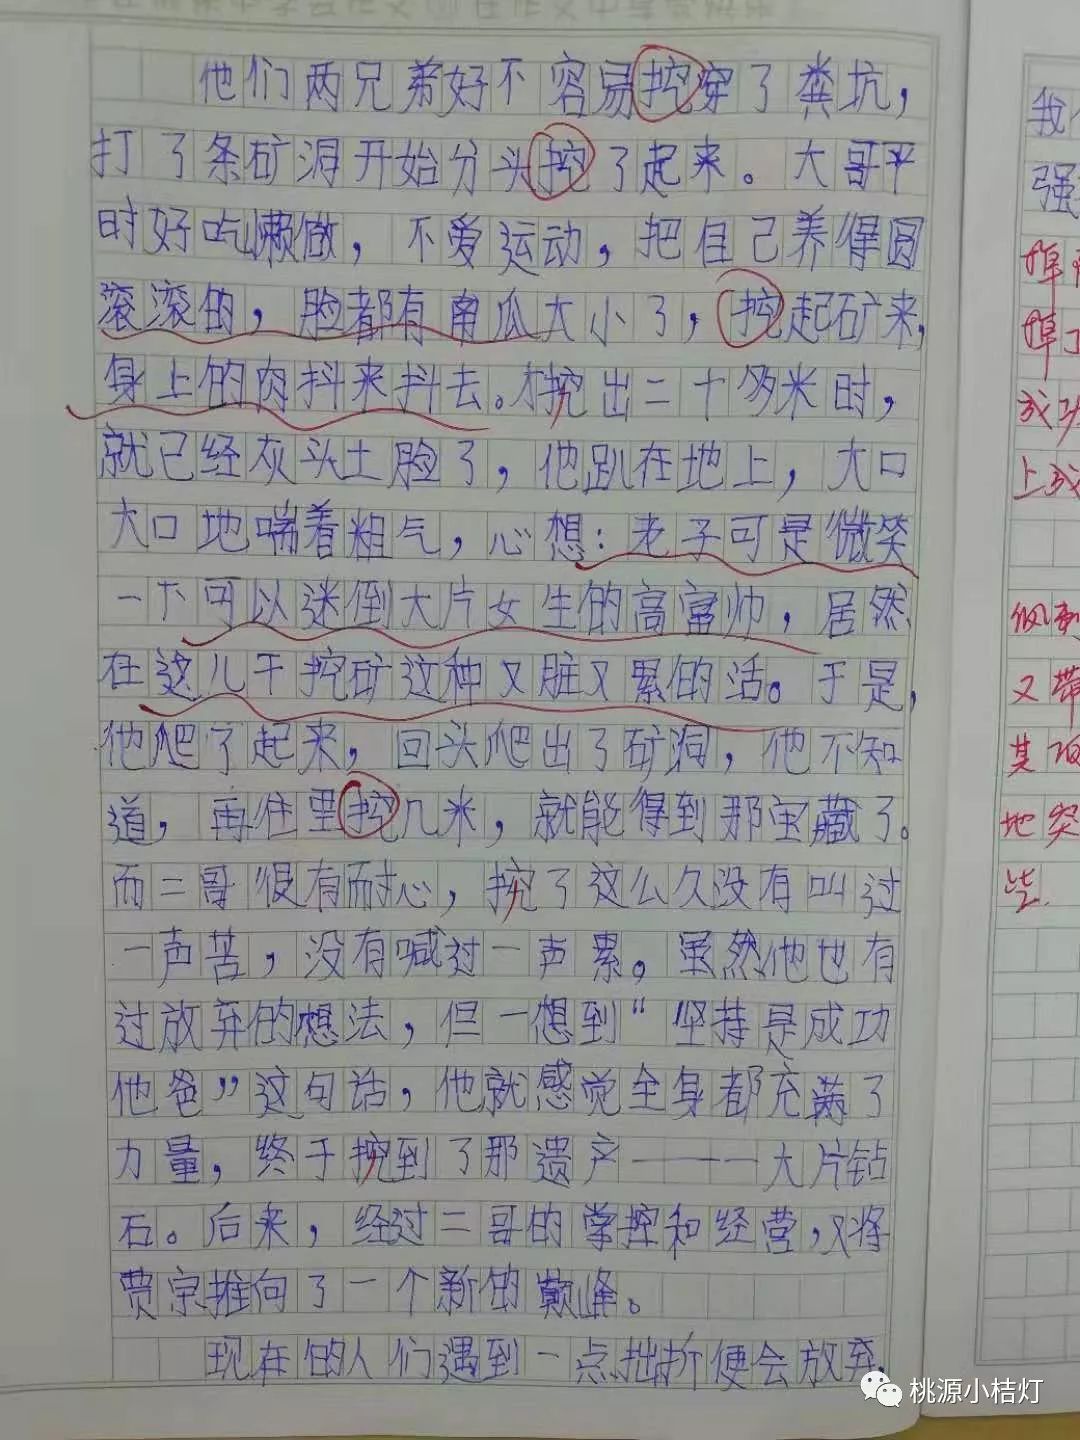 他们两兄弟好不容易挖穿了粪坑，
打了条矿洞开始分头挖了起来。大哥平
时好吃懒做，不爱运动，把自己养得圆
滚滚的，脸都有南瓜大小了，挖起矿来，
身上的肉抖来抖去。才挖出二十多米时，
就已经灰头土脸了，他趴在地上，大口
大口地喘着粗气，心想：老子可是微笑
一下可以迷倒大片女生的高富帅，居然
在这儿干挖矿这种又脏又累的活。于是，
他爬了起来，回头爬出了矿洞，他不知
道，再往里挖几米，就能得到那宝藏了。
而二哥很有耐心，挖了这么久没有叫过
一声苦，没有喊过一声累。虽然他也有
过放弃的想法，但一想到“坚持是成功
他爸”这句话，他就感觉全身都充满了
力量，终于挖到了那遗产———大片钻
石。后来，经过二哥的掌控和经营，又将
贾宗推向了一个新的巅峰。
现在的人们遇到一点挫折便会放弃，
我
强
成功
上成
又带
某
地突
些.
桃源小桔灯